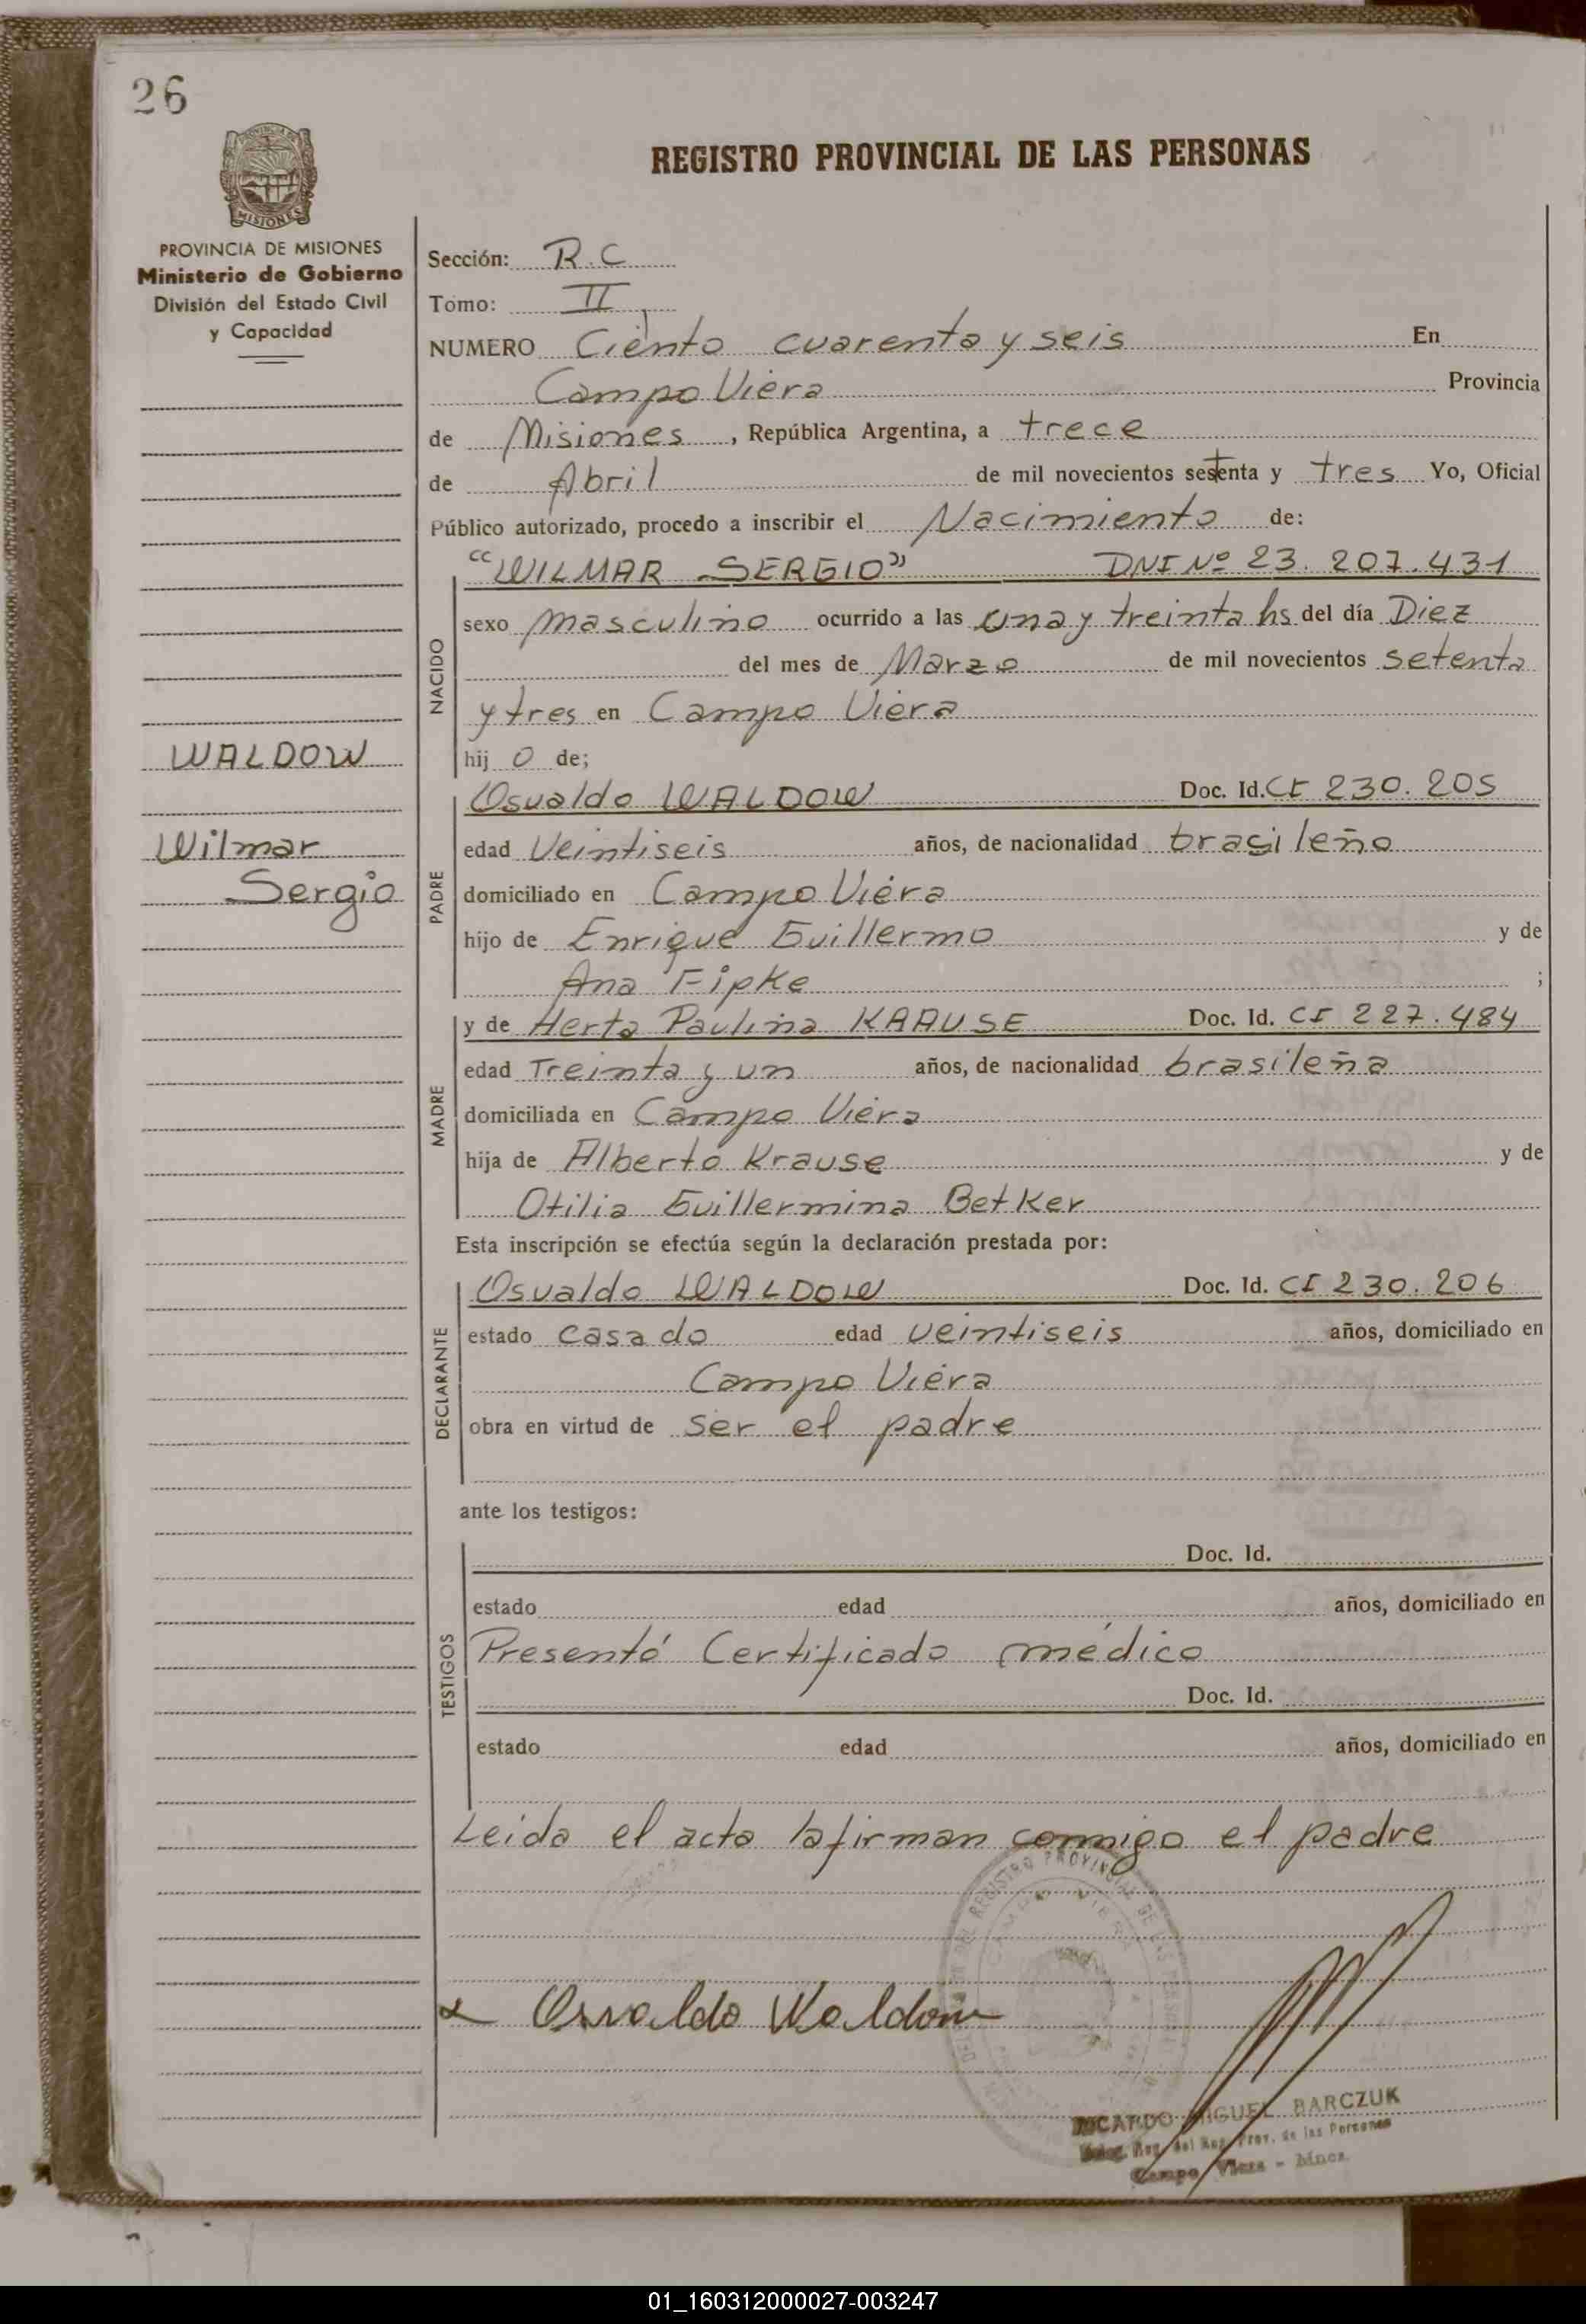 26
REGISTRO PROVINCIAL DE LAS PERSONAS
MISIONES
PROVINCIA DE MISIONES
Ministerio de Gobierno
División del Estado Civil
y Capacidad
WALDOW
Wilmar
Sergio
Sección: R.C
Tomo: II
NUMERO Ciento cuarenta y seis En
Campo Viera Provincia
de Misiones, República Argentina, a trece
de Abril de mil novecientos setenta y tres Yo, Oficial
Público autorizado, procedo a inscribir el Nacimiento de:
NACIDO
"WILMAR SERGIO" DNI Nº 23.207.431
sexo masculino ocurrido a las una y treinta hs del día Diez
del mes de Marzo de mil novecientos setenta
y tres en Campo Viera
hij o de;
PADRE
Osvaldo WALDOW Doc. Id. CI 230.205
edad Veintiseis años, de nacionalidad brasileño
domiciliado en Campo Viera
hijo de Enrique Guillermo y de
Ana Fipke ;
MADRE
y de Herta Paulina KRAUSE Doc. Id. CI 227.484
edad Treinta y un años, de nacionalidad brasileña
domiciliada en Campo Viera
hija de Alberto Krause y de
Otilia Guillermina Betker
Esta inscripción se efectúa según la declaración prestada por:
DECLARANTE
Osvaldo WALDOW Doc. Id. CI 230.206
estado casado edad veintiseis años, domiciliado en
Campo Viera
obra en virtud de ser el padre
ante los testigos:
TESTIGOS
Doc. Id.
estado edad años, domiciliado en
Presentó Certificado médico
Doc. Id.
estado edad años, domiciliado en
Leida el acta la firman conmigo el padre
Osvaldo Waldow
RICARDO MIGUEL BARCZUK
Deleg. Reg. del Reg. Prov. de las Personas
Campo Viera - Mnes.
01_160312000027-003247